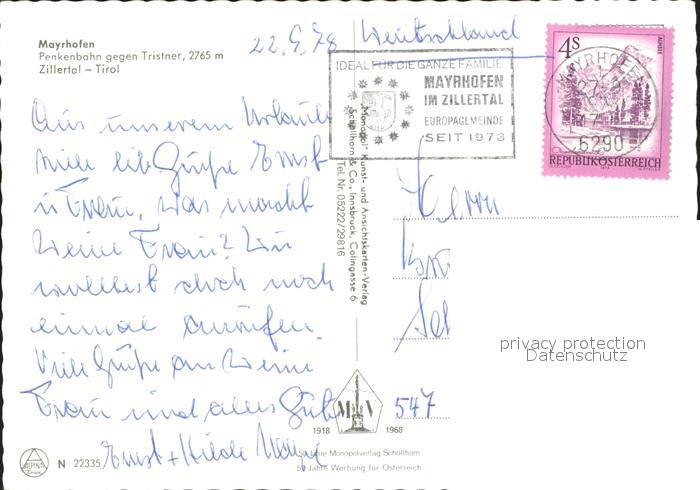 Mayrhofen
Penkenbahn gegen Tristner, 2765 m
Zillertal – Tirol
22.9.78 Deutschland
IDEAL FÜR DIE GANZE FAMILIE
MAYRHOFEN
IM ZILLERTAL
EUROPAGEMEINDE
SEIT 1973
4S
ALMSEE
REPUBLIK ÖSTERREICH
MAYRHOFEN
6290
Aus unserem Urlaube
viele lib Grüße Ernst
u Frau, was macht
Deine Frau? Du
wolltest doch noch
einmal anrufen.
Viele Grüße an Deine
Frau und alles Gute
Ernst + Hilde
"Monopol" Kunst- und Ansichtskarten-Verlag
Schöllhorn & Co., Innsbruck, Colingasse 6
Tel. Nr. 05222/29816
Herrn
547
privacy protection
Datenschutz
M V
1918 1968
50 Jahre Monopolverlag Schöllhorn
50 Jahre Werbung für Österreich
ALPINA
N 22335